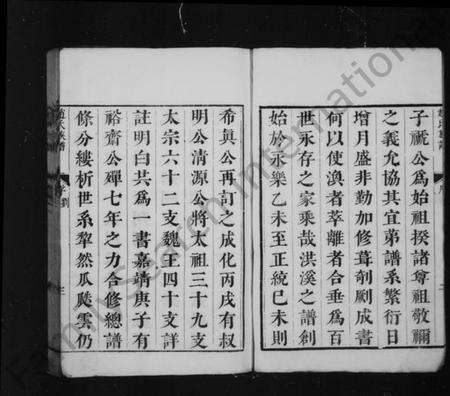 子禠公為始祖揆諸尊祖敬禰
之義允協其宜第譜系繁衍日
增月盛非勤加修葺剞劂成書
何以使渙者萃離者合垂為百
世永存之家乗哉洪溪之譜創
始於永樂乙未至正統巳未則
希眞公再訂之成化丙戌有叔
明公清源公將太祖三十九支
太宗六十二支魏王四十支詳
註明白共為一書嘉靖庚子有
裕齋公殫七年之力合修總譜
條分縷析世系犂然瓜瓞雲仍
趙氏族譜
序
劉
三